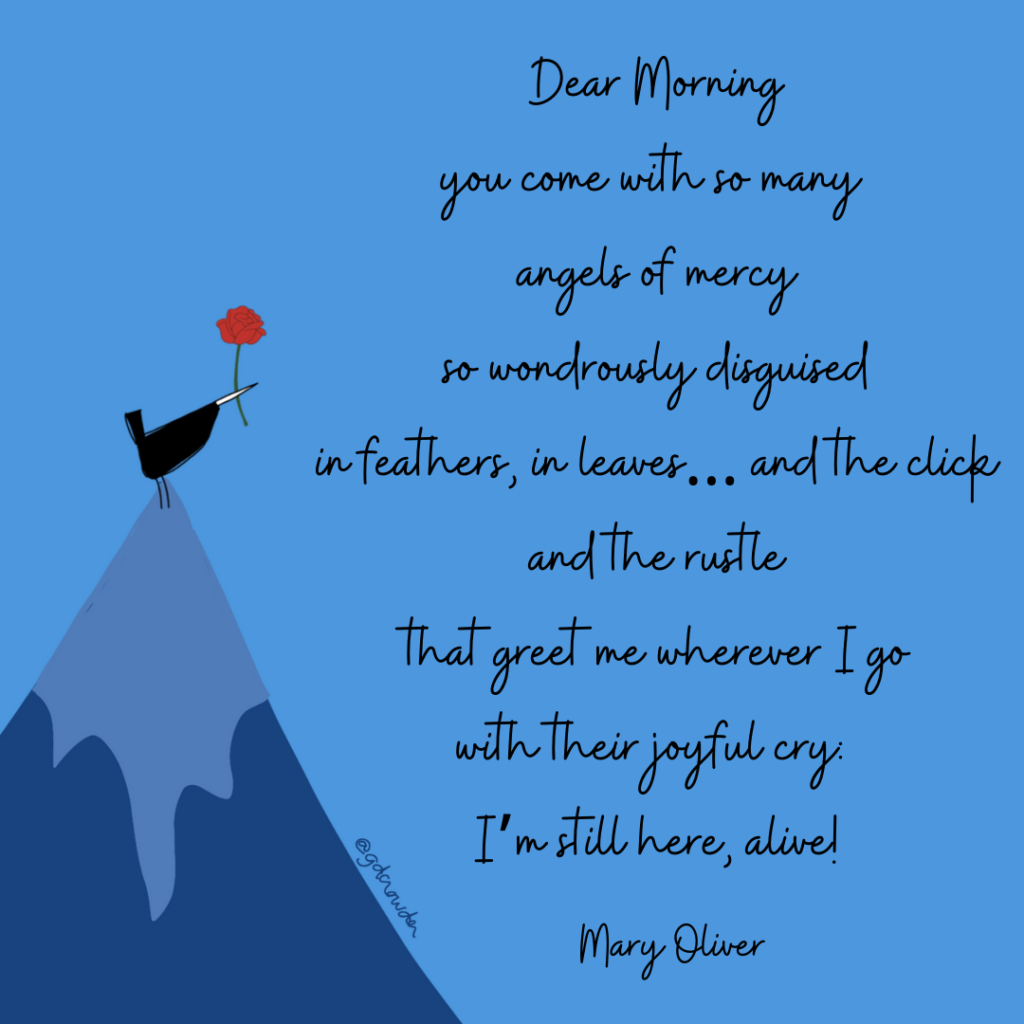 Dear Morning
you come with so many
angels of mercy
so wondrously disguised
in feathers, in leaves... and the click
and the rustle
that greet me wherever I go
with their joyful cry:
I'm still here, alive!
@gdcrowder
Mary Oliver